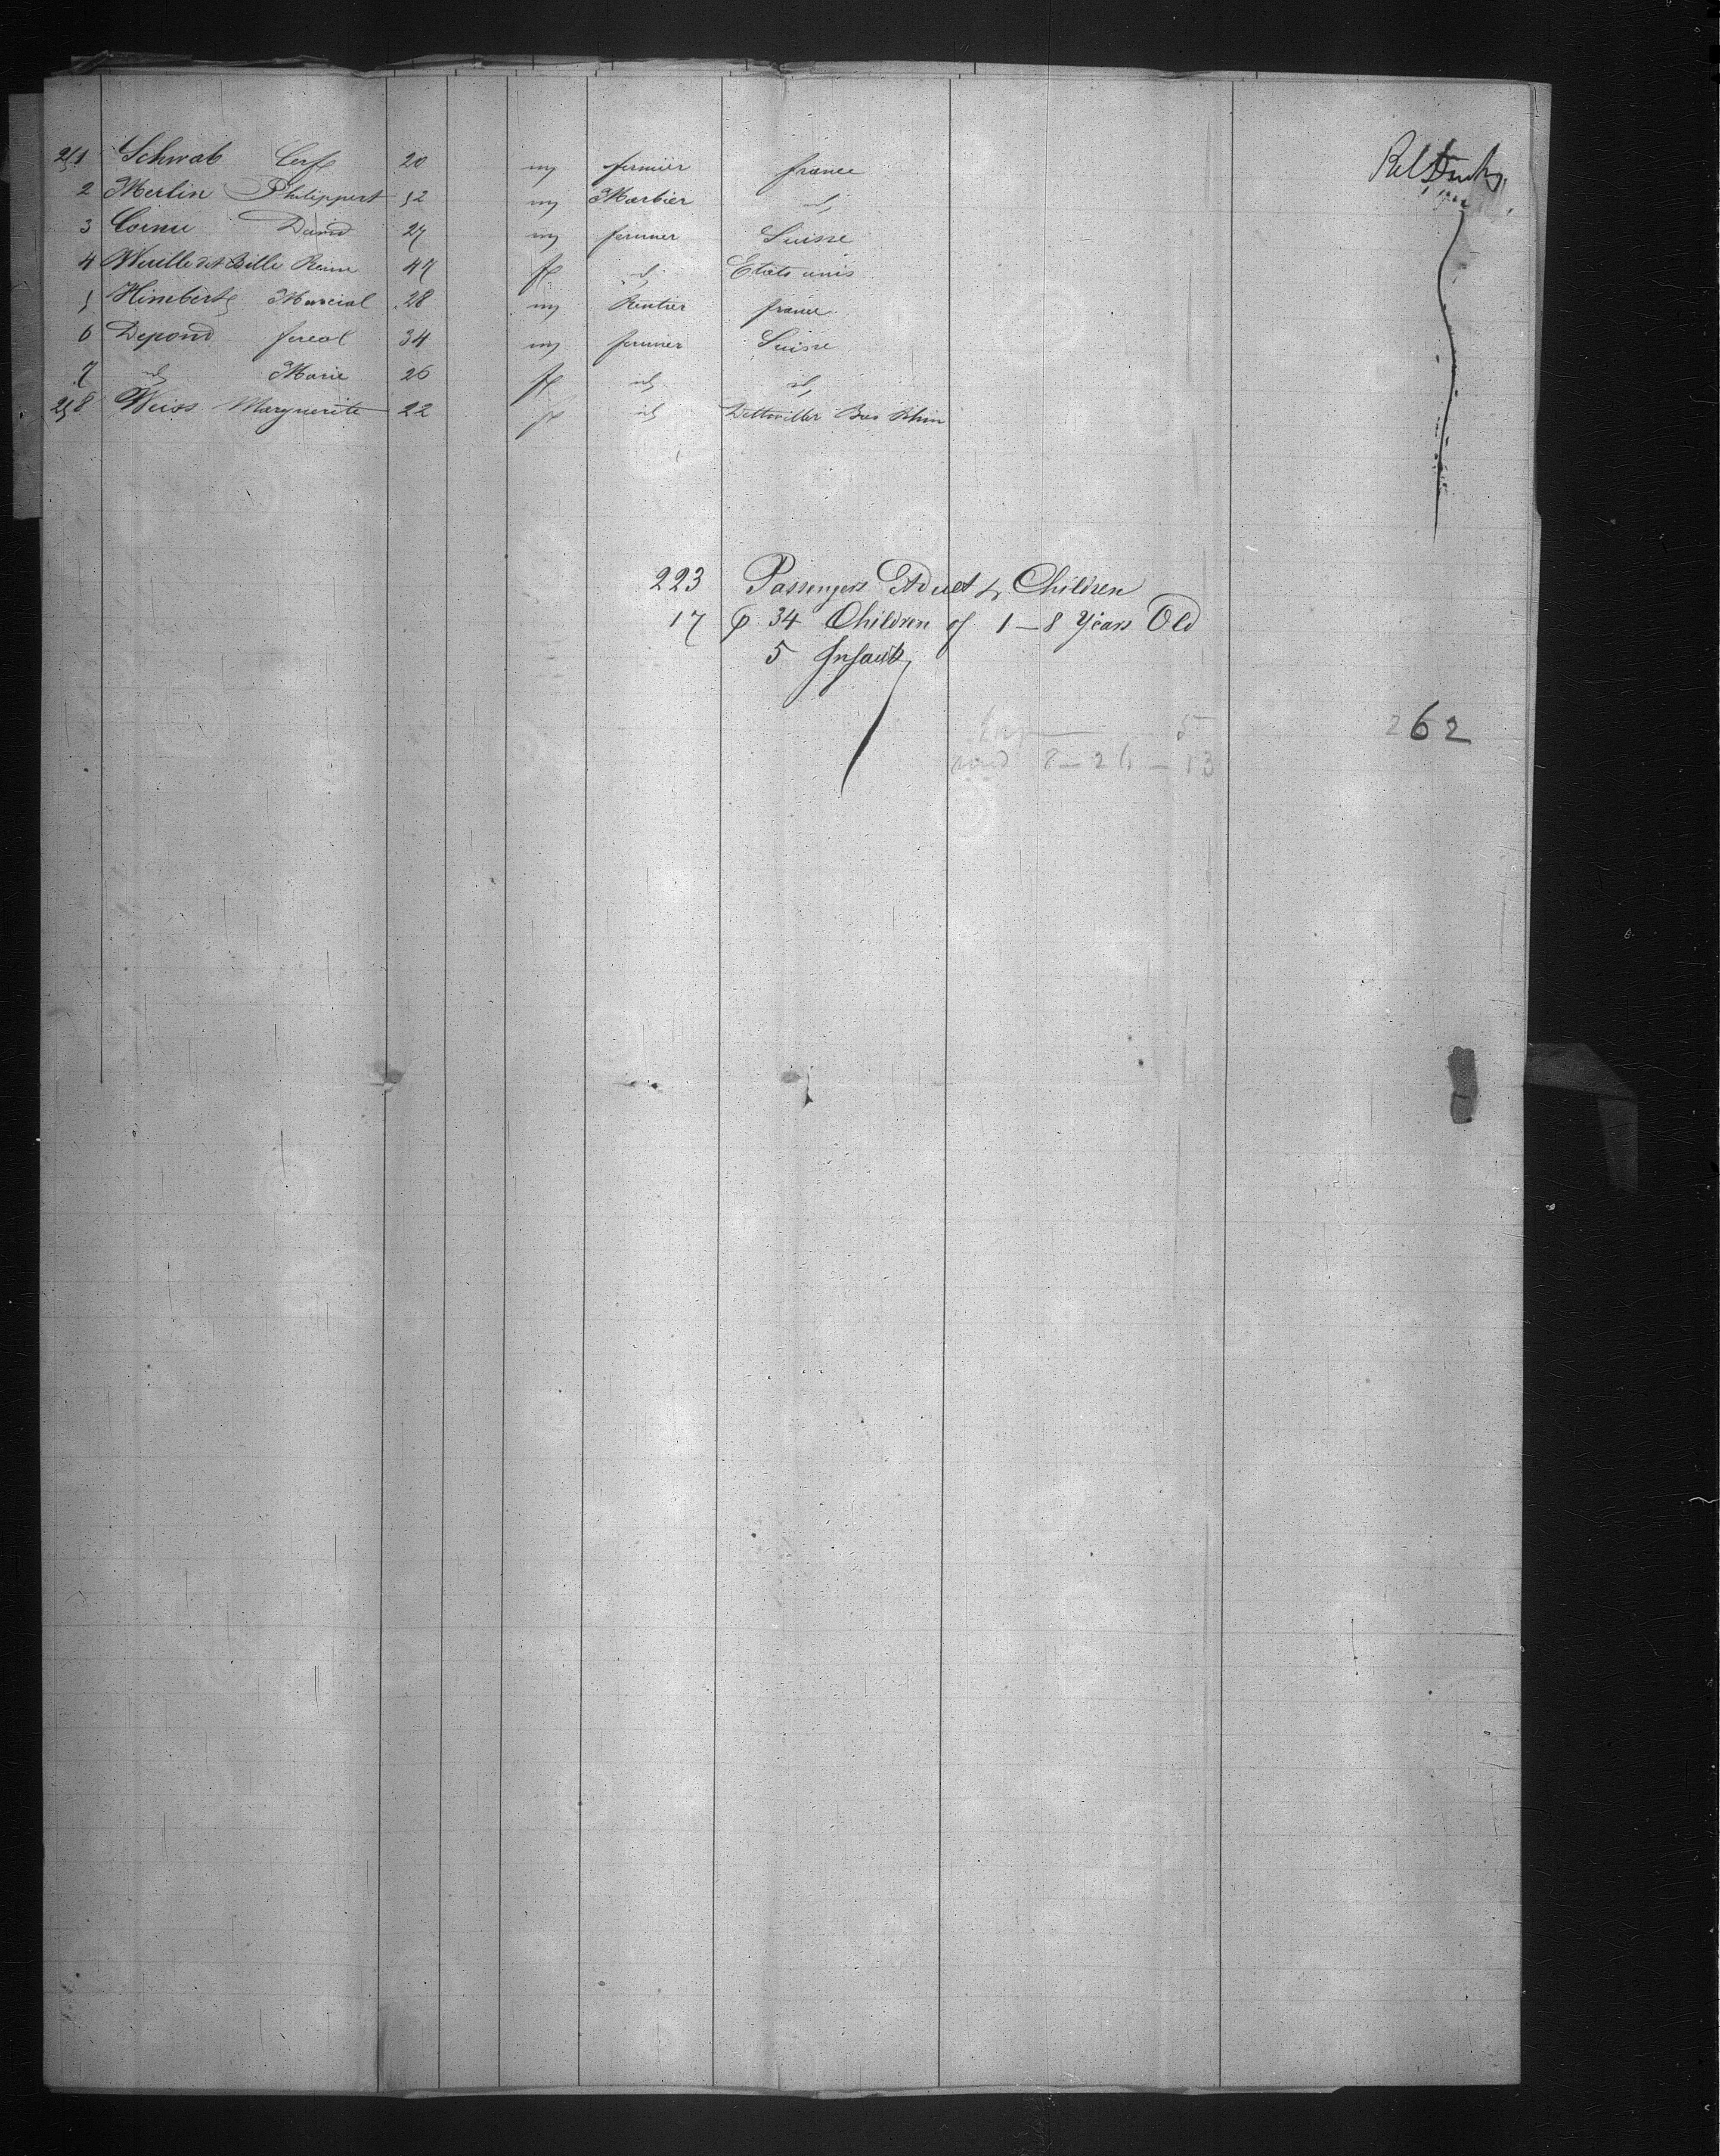 251 Schwab Cerf 20 m fermier france
2 Merlin Philippert 52 m Marbier id
3 Cornu David 27 m fermier Suisse
4 Wuille dit Belle Reine 47 f id Etats unis
5 Himbert Marcial 28 m Rentier france
6 Depond fereol 34 m fermier Suisse
7 id Marie 26 f id id
258 Weiss Marguerite 22 f id Dettwiller Bas Rhin
223 Passengers Adult & Children
17 34 Children of 1-8 Years Old
5 Infants
5
262
8-26-13